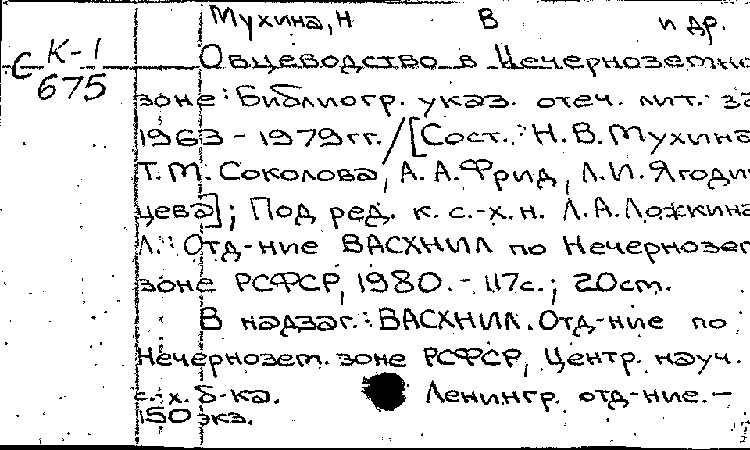 Мухина, Н В и др.
С К-1
675
Овцеводство в Нечерноземно
зоне: Библиогр. указ. отеч. лит. за
1963 - 1979гг. / [Сост.: Н.В. Мухина
Т.М. Соколова, А.А. Фрид, Л.И. Ягодин
цева]; Под ред. к. с.-х. н. Л.А. Ложкина
Л.: Отд-ние ВАСХНИЛ по Нечернозем
зоне РСФСР, 1980. - 117с.; 20см.
В надзаг.: ВАСХНИЛ. Отд-ние по
Нечернозем. зоне РСФСР, Центр. науч.
с.-х. б-ка. Ленингр. отд-ние. -
150 экз.